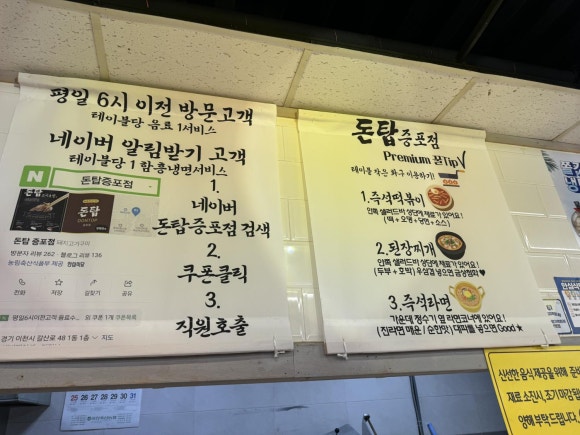 평일 6시 이전 방문고객
테이블당 음료 1서비스
네이버 알림받기 고객
테이블당 1 함흥냉면서비스
N 돈탑증포점
돈탑
돈탑
돈탑 증포점 돼지고기구이
방문자 리뷰 262 · 블로그 리뷰 136
전화 저장 길찾기 공유
경기 이천시 갈산로 48 1동 1층 지도
1.
네이버
돈탑증포점 검색
2.
쿠폰클릭
3.
직원호출
돈탑증포점
Premium 꿀Tip
테이블 작은 화구 이용하기!
1.즉석떡볶이
안쪽 샐러드바 상단에 재료가 있어요!
(떡 + 오뎅 + 당면 + 소스)
2.된장찌개
안쪽 샐러드바 상단에 재료가 있어요!
(두부 + 호박) 우삼겹 넣으면 금상첨화♥
3.즉석라면
가운데 정수기 옆 라면코너에 있어요!
(진라면 매운 / 순한맛) 대파를 넣으면 Good★
신선한 음식 제공을 위해
재료 소진시, 조기마감
양해 부탁드립니다.
25 26 27 28 29 30 31